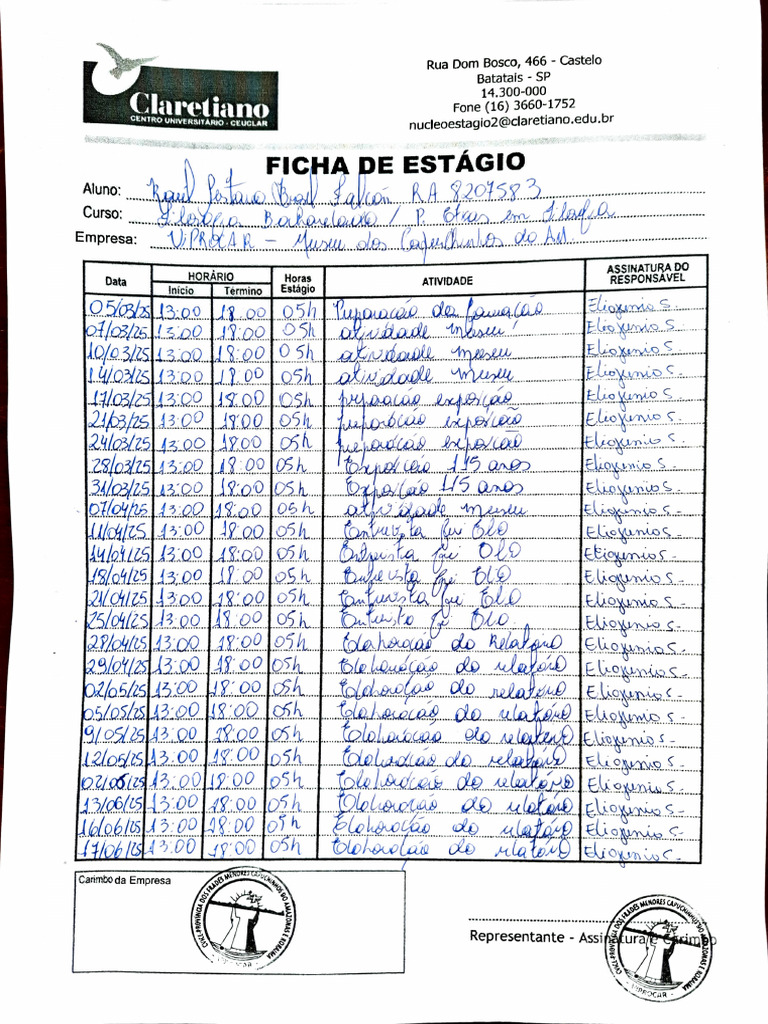 Claretiano
CENTRO UNIVERSITÁRIO - CEUCLAR
Rua Dom Bosco, 466 - Castelo
Batatais - SP
14.300-000
Fone (16) 3660-1752
nucleoestagio2@claretiano.edu.br
FICHA DE ESTÁGIO
Aluno: RA 8207583
Curso: Filosofia Bacharelado / P. Étics em Filosofia
Empresa: VIPROCAR - Museu dos Capuchinhos do AM
Data HORÁRIO Início Término Horas Estágio ATIVIDADE ASSINATURA DO RESPONSÁVEL
05/03/25 13:00 18:00 05h Preparação da formação Eliogenio S.
07/03/25 13:00 18:00 05h atividade museu Eliogenio S.
10/03/25 13:00 18:00 05h atividade museu Eliogenio S.
14/03/25 13:00 18:00 05h atividade museu Eliogenio S.
17/03/25 13:00 18:00 05h preparação exposição Eliogenio S.
21/03/25 13:00 18:00 05h preparação exposição Eliogenio S.
24/03/25 13:00 18:00 05h preparação exposição Eliogenio S.
28/03/25 13:00 18:00 05h Exposição 115 anos Eliogenio S.
31/03/25 13:00 18:00 05h Exposição 115 anos Eliogenio S.
07/04/25 13:00 18:00 05h atividade museu Eliogenio S.
11/04/25 13:00 18:00 05h Entrevista frei Elo Eliogenio S.
14/04/25 13:00 18:00 05h Entrevista frei Elo Eliogenio S.
18/04/25 13:00 18:00 05h Entrevista frei Elo Eliogenio S.
21/04/25 13:00 18:00 05h Entrevista frei Elo Eliogenio S.
25/04/25 13:00 18:00 05h Entrevista frei Elo Eliogenio S.
28/04/25 13:00 18:00 05h Elaboração do Relatório Eliogenio S.
29/04/25 13:00 18:00 05h Elaboração do relatório Eliogenio S.
02/05/25 13:00 18:00 05h Elaboração do relatório Eliogenio S.
05/05/25 13:00 18:00 05h Elaboração do relatório Eliogenio S.
9/05/25 13:00 18:00 05h Elaboração do relatório Eliogenio S.
12/05/25 13:00 18:00 05h Elaboração do relatório Eliogenio S.
02/06/25 13:00 18:00 05h Elaboração do relatório Eliogenio S.
13/06/25 13:00 18:00 05h Elaboração do relatório Eliogenio S.
16/06/25 13:00 18:00 05h Elaboração do relatório Eliogenio S.
17/06/25 13:00 18:00 05h Elaboração do relatório Eliogenio S.
Carimbo da Empresa
CÚRIA PROVINCIA DOS FRADES MENORES CAPUCHINHOS DO AMAZONAS E RORAIMA
Representante - Assinatura e Carimbo
VIPROCAR